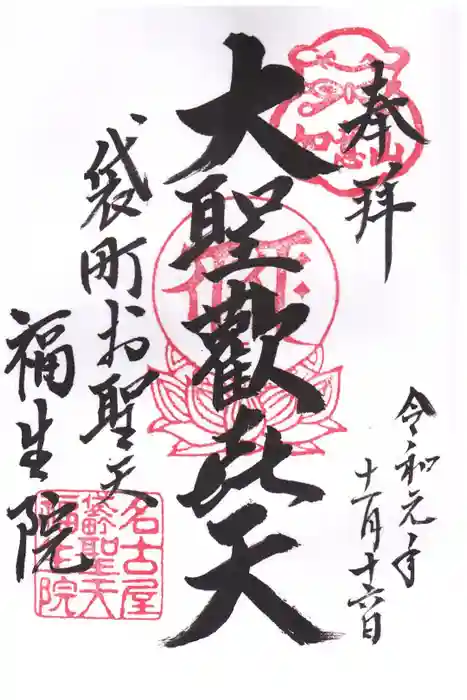 奉拝
如意山
令和元年
十一月十六日
大聖歓㐂天
袋町お聖天
福生院
名古屋
袋町聖天
福生院